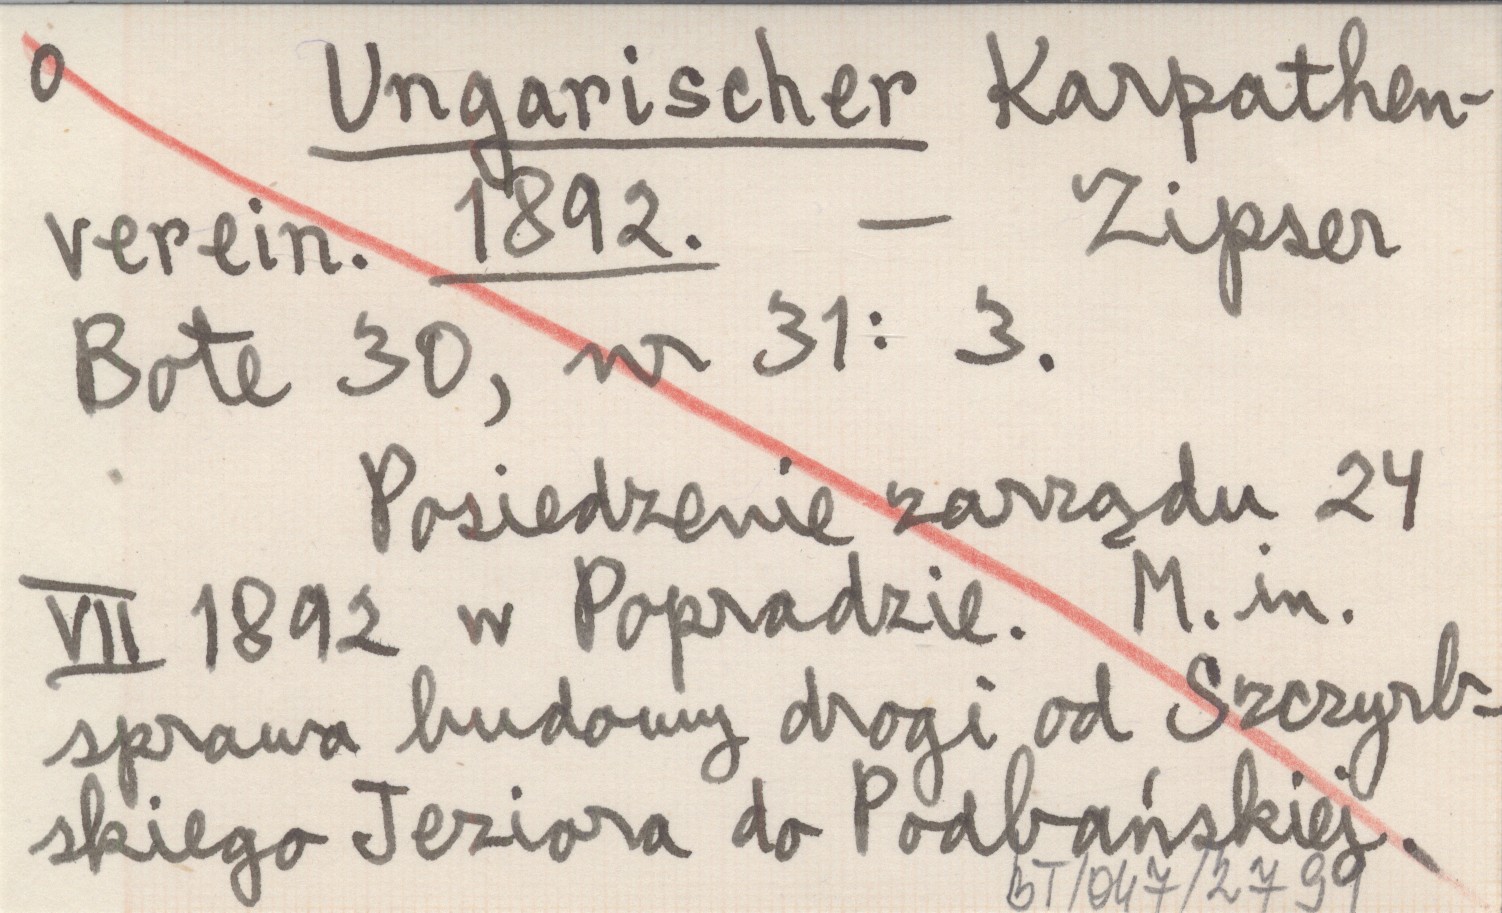 0 Ungarischer Karpathen-
verein. 1892. — Zipser
Bote 30, nr 31: 3.
Posiedzenie zarządu 24
VII 1892 w Popradzie. M. in.
sprawa budowy drogi od Szczyrb-
skiego Jeziora do Podbańskiej.
BT/047/2799